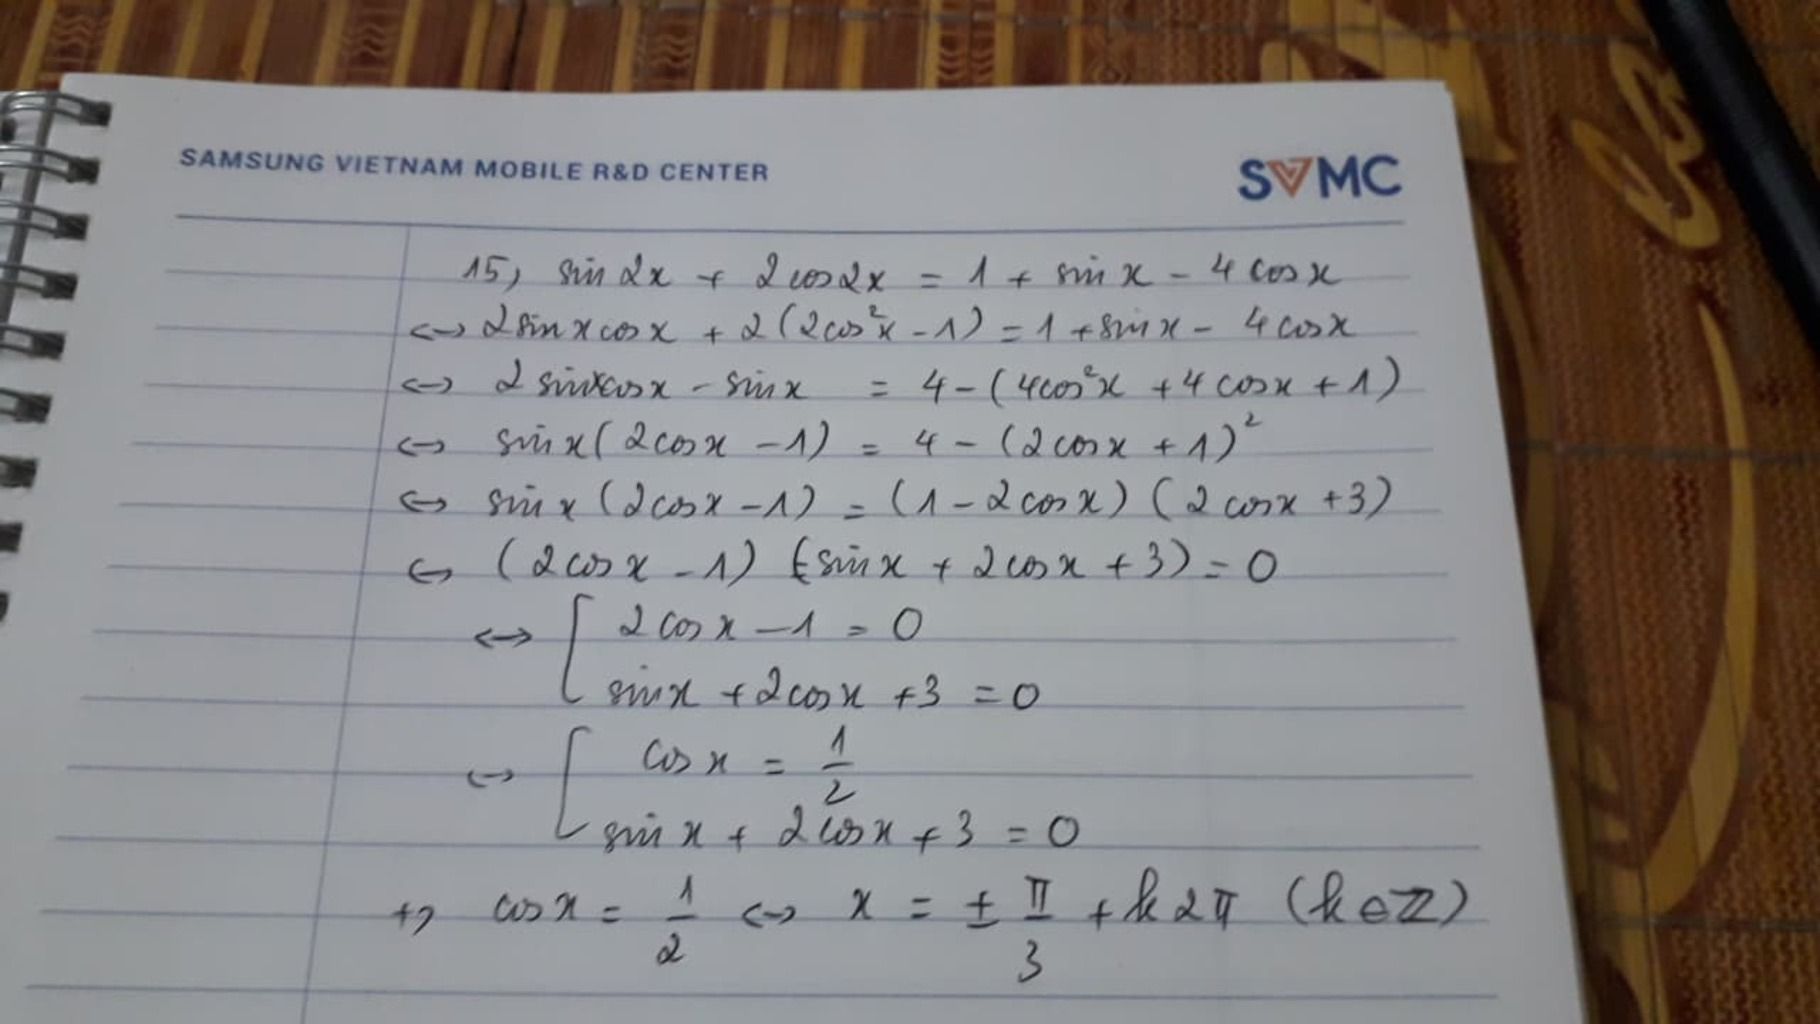 SAMSUNG VIETNAM MOBILE R&D CENTER
SVMC
15, sin 2x + 2 cos 2x = 1 + sin x - 4 cos x
<-> 2 sin x cos x + 2 (2cos²x - 1) = 1 + sin x - 4 cos x
<-> 2 sin x cos x - sin x = 4 - (4cos²x + 4 cos x + 1)
<-> sin x (2 cos x - 1) = 4 - (2 cos x + 1)²
<-> sin x (2 cos x - 1) = (1 - 2 cos x) (2 cos x + 3)
<-> (2 cos x - 1) (sin x + 2 cos x + 3) = 0
<-> [ 2 cos x - 1 = 0
sin x + 2 cos x + 3 = 0
<-> [ cos x = 1/2
sin x + 2 cos x + 3 = 0
+, cos x = 1/2 <-> x = ± π/3 + k2π (k∈Z)